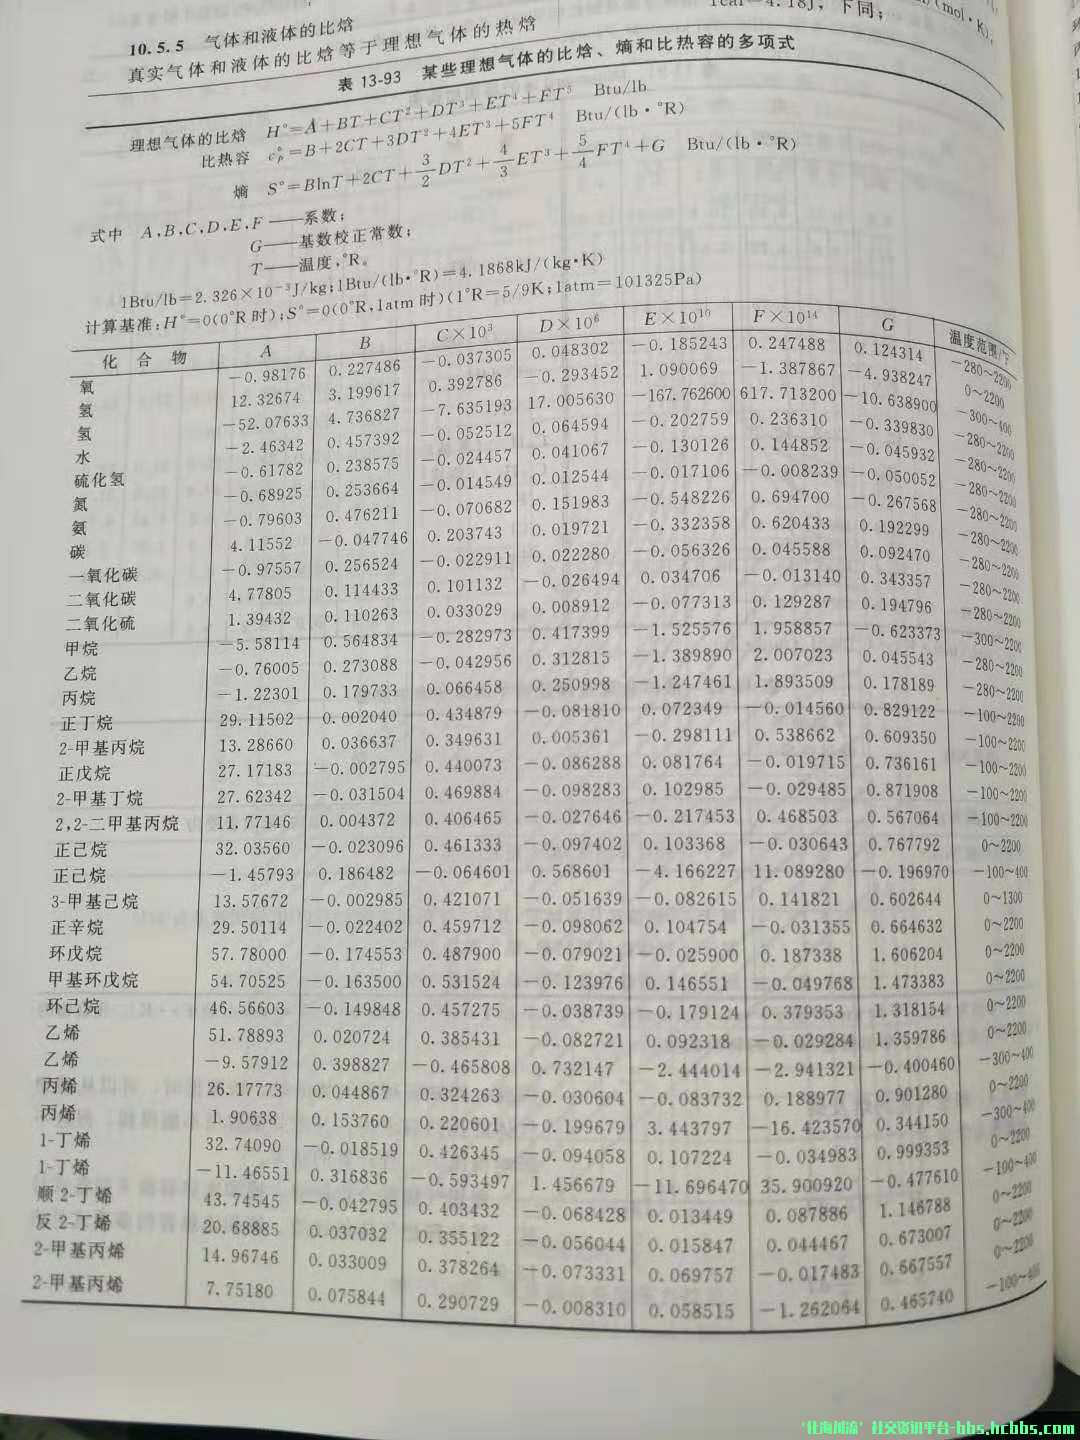 1cal=4.18J，下同；
(mol·K)，
10.5.5 气体和液体的比焓
真实气体和液体的比焓等于理想气体的热焓
表 13-93 某些理想气体的比焓、熵和比热容的多项式
理想气体的比焓 H°=A+BT+CT²+DT³+ET⁴+FT⁵ Btu/lb
比热容 c°p=B+2CT+3DT²+4ET³+5FT⁴ Btu/(lb·°R)
熵 S°=BlnT+2CT+3/2DT²+4/3ET³+5/4FT⁴+G Btu/(lb·°R)
式中 A,B,C,D,E,F——系数；
G——基数校正常数；
T——温度,°R。
1Btu/lb=2.326×10⁻³J/kg;1Btu/(lb·°R)=4.1868kJ/(kg·K)
计算基准:H°=0(0°R时);S°=0(0°R,1atm时)(1°R=5/9K;1atm=101325Pa)
化合物 A B C×10³ D×10⁶ E×10¹⁰ F×10¹⁴ G 温度范围/℉
氧 -0.98176 0.227486 -0.037305 0.048302 -0.185243 0.247488 0.124314 -280~2200
氢 12.32674 3.199617 0.392786 -0.293452 1.090069 -1.387867 -4.938247 0~2200
氢 -52.07633 4.736827 -7.635193 17.005630 -167.762600 617.713200 -10.638900 -300~400
水 -2.46342 0.457392 -0.052512 0.064594 -0.202759 0.236310 -0.339830 -280~2200
硫化氢 -0.61782 0.238575 -0.024457 0.041067 -0.130126 0.144852 -0.045932 -280~2200
氮 -0.68925 0.253664 -0.014549 0.012544 -0.017106 -0.008239 -0.050052 -280~2200
氨 -0.79603 0.476211 -0.070682 0.151983 -0.548226 0.694700 -0.267568 -280~2200
碳 4.11552 -0.047746 0.203743 0.019721 -0.332358 0.620433 0.192299 -280~2200
一氧化碳 -0.97557 0.256524 -0.022911 0.022280 -0.056326 0.045588 0.092470 -280~2200
二氧化碳 4.77805 0.114433 0.101132 -0.026494 0.034706 -0.013140 0.343357 -280~2200
二氧化硫 1.39432 0.110263 0.033029 0.008912 -0.077313 0.129287 0.194796 -280~2200
甲烷 -5.58114 0.564834 -0.282973 0.417399 -1.525576 1.958857 -0.623373 -300~2200
乙烷 -0.76005 0.273088 -0.042956 0.312815 -1.389890 2.007023 0.045543 -280~2200
丙烷 -1.22301 0.179733 0.066458 0.250998 -1.247461 1.893509 0.178189 -280~2200
正丁烷 29.11502 0.002040 0.434879 -0.081810 0.072349 -0.014560 0.829122 -100~2200
2-甲基丙烷 13.28660 0.036637 0.349631 0.005361 -0.298111 0.538662 0.609350 -100~2200
正戊烷 27.17183 -0.002795 0.440073 -0.086288 0.081764 -0.019715 0.736161 -100~2200
2-甲基丁烷 27.62342 -0.031504 0.469884 -0.098283 0.102985 -0.029485 0.871908 -100~2200
2,2-二甲基丙烷 11.77146 0.004372 0.406465 -0.027646 -0.217453 0.468503 0.567064 -100~2200
正己烷 32.03560 -0.023096 0.461333 -0.097402 0.103368 -0.030643 0.767792 0~2200
正己烷 -1.45793 0.186482 -0.064601 0.568601 -4.166227 11.089280 -0.196970 -100~400
3-甲基己烷 13.57672 -0.002985 0.421071 -0.051639 -0.082615 0.141821 0.602644 0~1300
正辛烷 29.50114 -0.022402 0.459712 -0.098062 0.104754 -0.031355 0.664632 0~2200
环戊烷 57.78000 -0.174553 0.487900 -0.079021 -0.025900 0.187338 1.606204 0~2200
甲基环戊烷 54.70525 -0.163500 0.531524 -0.123976 0.146551 -0.049768 1.473383 0~2200
环己烷 46.56603 -0.149848 0.457275 -0.038739 -0.179124 0.379353 1.318154 0~2200
乙烯 51.78893 0.020724 0.385431 -0.082721 0.092318 -0.029284 1.359786 0~2200
乙烯 -9.57912 0.398827 -0.465808 0.732147 -2.444014 -2.941321 -0.400460 -300~400
丙烯 26.17773 0.044867 0.324263 -0.030604 -0.083732 0.188977 0.901280 0~2200
丙烯 1.90638 0.153760 0.220601 -0.199679 3.443797 -16.423570 0.344150 -300~400
1-丁烯 32.74090 -0.018519 0.426345 -0.094058 0.107224 -0.034983 0.999353 0~2200
1-丁烯 -11.46551 0.316836 -0.593497 1.456679 -11.696470 35.900920 -0.477610 -100~400
顺2-丁烯 43.74545 -0.042795 0.403432 -0.068428 0.013449 0.087886 1.146788 0~2200
反2-丁烯 20.68885 0.037032 0.355122 -0.056044 0.015847 0.044467 0.673007 0~2200
2-甲基丙烯 14.96746 0.033009 0.378264 -0.073331 0.069757 -0.017483 0.667557 0~2200
2-甲基丙烯 7.75180 0.075844 0.290729 -0.008310 0.058515 -1.262064 0.465740 -100~400
'化海川流' 社交资讯平台-bbs.hcbbs.com